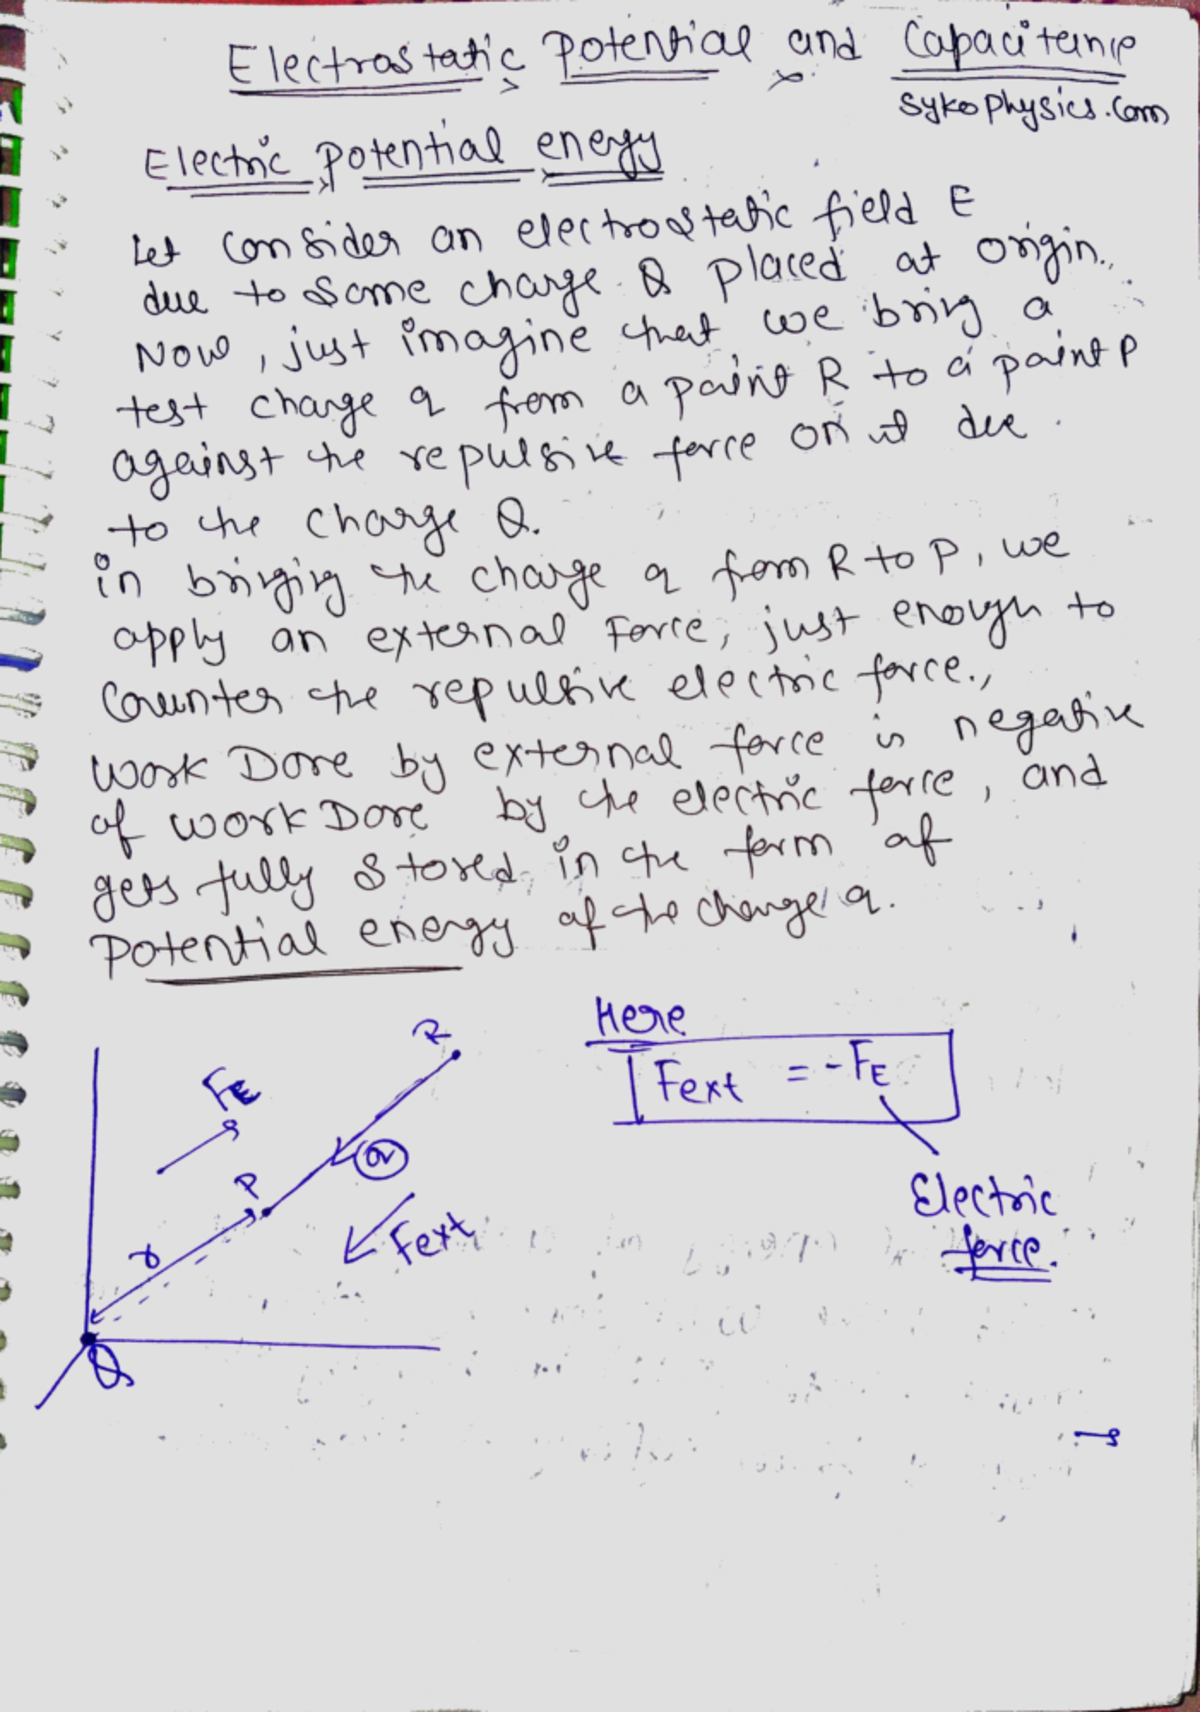 Electrostatic Potential and Capacitance
sykophysics.com
Electric potential energy
Let consider an electrostatic field E
due to some charge Q placed at origin.
Now, just imagine that we bring a
test charge q from a point R to a point P
against the repulsive force on it due
to the charge Q.
in bringing the charge q from R to P, we
apply an external Force, just enough to
Counter the repulsive electric force.,
Work Done by external force is negative
of work Done by the electric force, and
gets fully stored in the form of
Potential energy of the charge q.
Here
Fext = -FE
Electric
force.
R
FE
P
Fext
r
Q